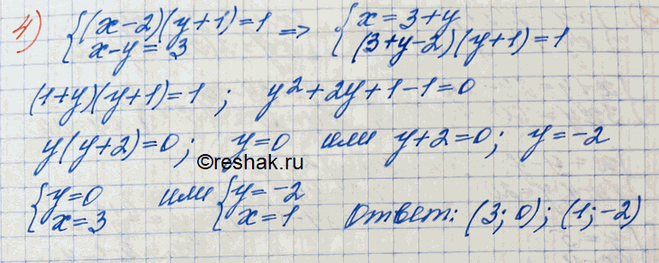 4) {(x-2)(y+1)=1 => {x=3+y
x-y=3 (3+y-2)(y+1)=1
(1+y)(y+1)=1; y²+2y+1-1=0
y(y+2)=0; y=0 или y+2=0; y=-2
©reshak.ru
{y=0 или {y=-2
x=3 x=1 Ответ: (3; 0); (1; -2)